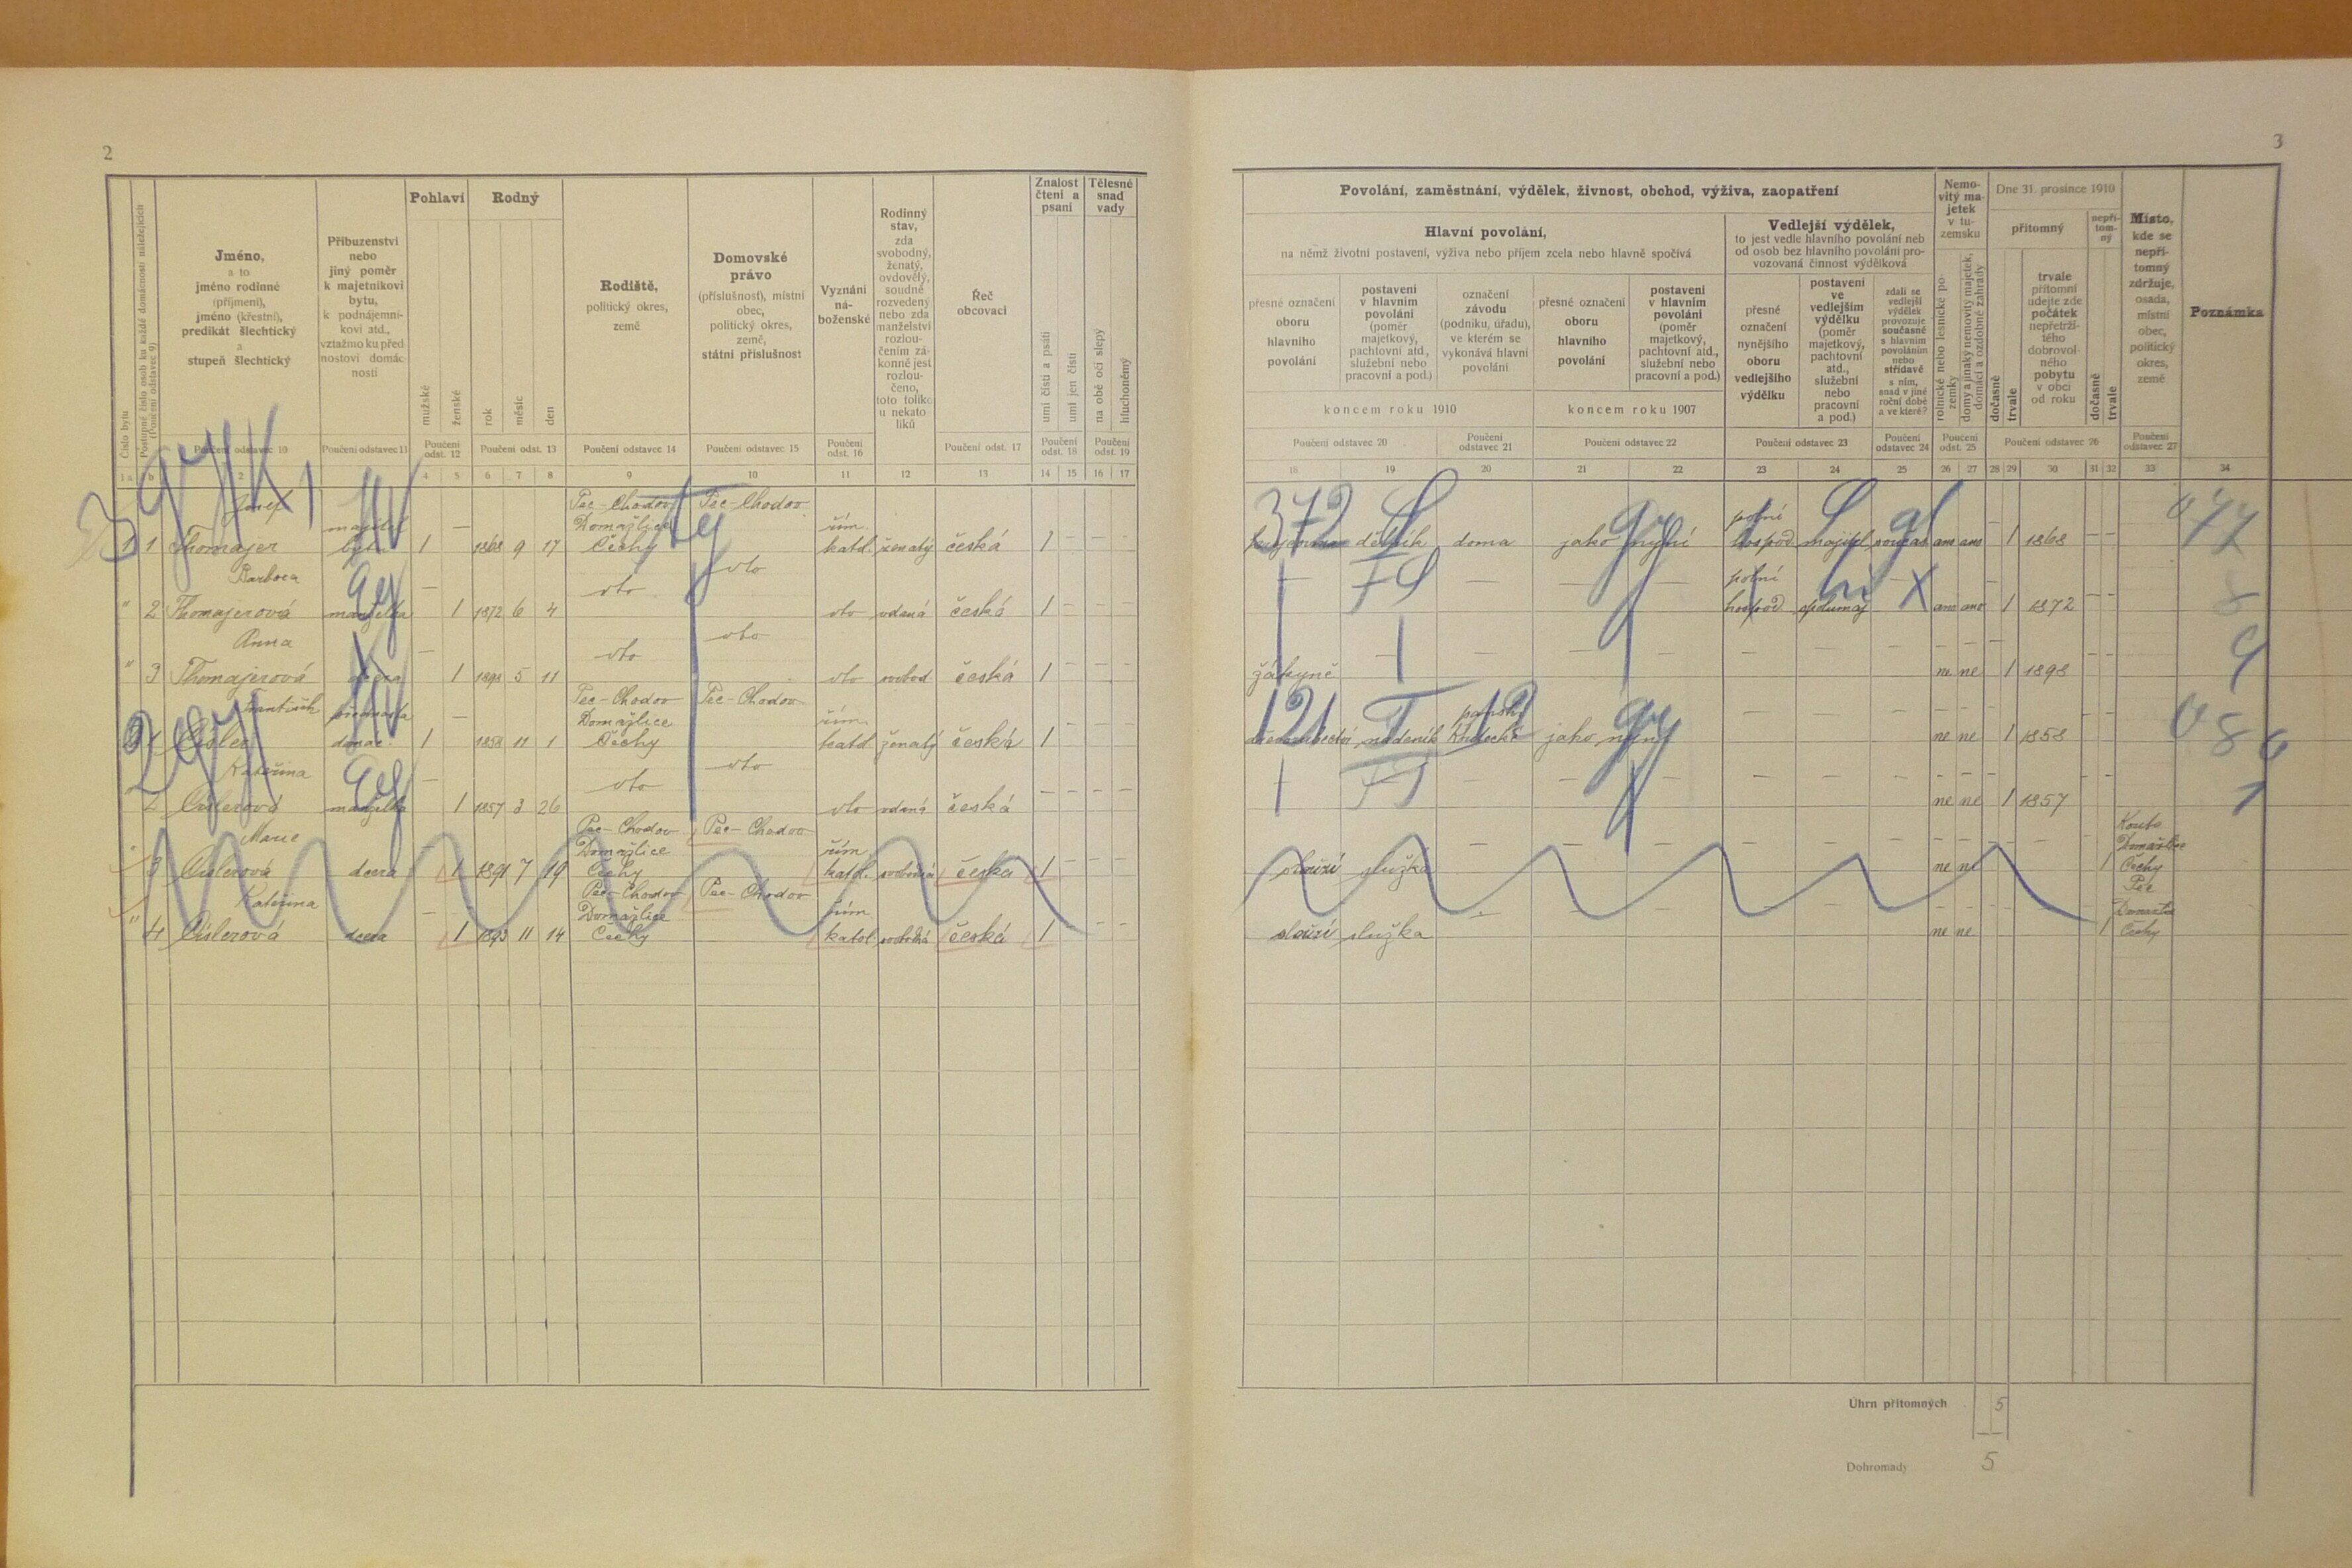 2
3
Číslo bytu
Postupné číslo osob ku každé domácnosti náležejících
(Poučení odstavec 9)
Jméno,
a to
jméno rodinné
(příjmení),
jméno (křestní),
predikát šlechtický
a
stupeň šlechtický
Příbuzenství
nebo
jiný poměr
k majetníkovi
bytu,
k podnájemní-
kovi atd.,
vztažmo ku před-
nostovi domác-
nosti
Pohlaví
mužské
ženské
Rodný
rok
měsíc
den
Rodiště,
politický okres,
země
Domovské
právo
(příslušnost), místní
obec,
politický okres,
země,
státní příslušnost
Vyznání
ná-
boženské
Rodinný
stav,
zda
svobodný,
ženatý,
ovdovělý,
soudně
rozvedený
nebo zda
manželství
rozlou-
čením zá-
konně jest
rozlou-
čeno,
toto toliko
u nekato-
líků
Řeč
obcovací
Znalost
čtení a
psaní
umí čísti a psáti
umí jen čísti
Tělesné
snad
vady
na obě oči slepý
hluchoněmý
Poučení odstavec 10
Poučení odstavec 11
Poučení
odst. 12
Poučení odst. 13
Poučení odstavec 14
Poučení odstavec 15
Poučení
odst. 16
Poučení odst. 17
Poučení
odst. 18
Poučení
odst. 19
1a b 2 4 5 6 7 8 9 10 11 12 13 14 15 16 17
Josef Pec-Chodov Pec-Chodov
majitel Domažlice řím.
1 1 Thomajer bytu 1 — 1868 9 17 Čechy katol. ženatý česká 1 — — —
Barbora dto dto
" 2 Thomajerová manželka — 1 1872 6 4 dto vdaná česká 1 — — —
Anna dto dto
" 3 Thomajerová dcera — 1 1898 5 11 dto svobod česká 1 — — —
František Pec-Chodov Pec-Chodov
přednosta Domažlice řím.
2 1 Cisler domác. 1 — 1858 11 1 Čechy katol. ženatý česká 1 — — —
Kateřina dto dto
2 Cislerová manželka — 1 1857 3 26 dto vdaná česká — — — —
Marie Pec-Chodov Pec-Chodov
Domažlice řím.
" 3 Cislerová dcera 1 1891 7 19 Čechy katol. svobodná česká 1 — — —
Kateřina Pec-Chodov Pec-Chodov
Domažlice řím.
" 4 Cislerová dcera — 1 1893 11 14 Čechy katol. svobodná česká 1 — —
Povolání, zaměstnání, výdělek, živnost, obchod, výživa, zaopatření
Hlavní povolání,
na němž životní postavení, výživa nebo příjem zcela nebo hlavně spočívá
přesné označení
oboru
hlavního
povolání
postavení
v hlavním
povolání
(poměr
majetkový,
pachtovní atd.,
služební nebo
pracovní a pod.)
označení
závodu
(podniku, úřadu),
ve kterém se
vykonává hlavní
povolání
koncem roku 1910
přesné označení
oboru
hlavního
povolání
postavení
v hlavním
povolání
(poměr
majetkový,
pachtovní atd.,
služební nebo
pracovní a pod.)
koncem roku 1907
Vedlejší výdělek,
to jest vedle hlavního povolání neb
od osob bez hlavního povolání pro-
vozovaná činnost výdělková
přesné
označení
nynějšího
oboru
vedlejšího
výdělku
postavení
ve
vedlejším
výdělku
(poměr
majetkový,
pachtovní
atd.,
služební
nebo
pracovní
a pod.)
zdali se
vedlejší
výdělek
provozuje
současně
s hlavním
povoláním
nebo
střídavě
s ním,
snad v jiné
roční době
a ve které?
Nemo-
vitý ma-
jetek
v tu-
zemsku
rolnické nebo lesnické po-
zemky
domy a jinaký nemovitý majetek,
domácí a ozdobné zahrady
Dne 31. prosince 1910
přítomný
dočasně
trvale
trvale
přítomní
udejte zde
počátek
nepřetrži-
tého
dobrovol-
ného
pobytu
v obci
od roku
nepří-
tom-
ný
dočasně
trvale
Místo,
kde se
nepří-
tomný
zdržuje,
osada,
místní
obec,
politický
okres,
země
Poznámka
Poučení odstavec 20
Poučení
odstavec 21
Poučení odstavec 22
Poučení odstavec 23
Poučení
odstavec 24
Poučení
odst. 25
Poučení odstavec 26
Poučení
odstavec 27
18 19 20 21 22 23 24 25 26 27 28 29 30 31 32 33 34
372
polní
dělník doma jako nyní hospod. majitel součas. ano ano — 1 1868 — —
polní
— — — — hospod. ano ano 1 1872 — —
žákyně — — — — — — — ne ne — 1 1898 — —
121
nádeník jako nyní — — — ne ne — 1 1858 — —
— — — — — — ne ne — 1 1857 — —
Kouto
Domažlice
slouží služka — — — — — — ne ne — — — 1 Čechy
Pec
Domažlice
slouží služka — — — — — — ne ne 1 Čechy
Úhrn přítomných 5
Dohromady 5